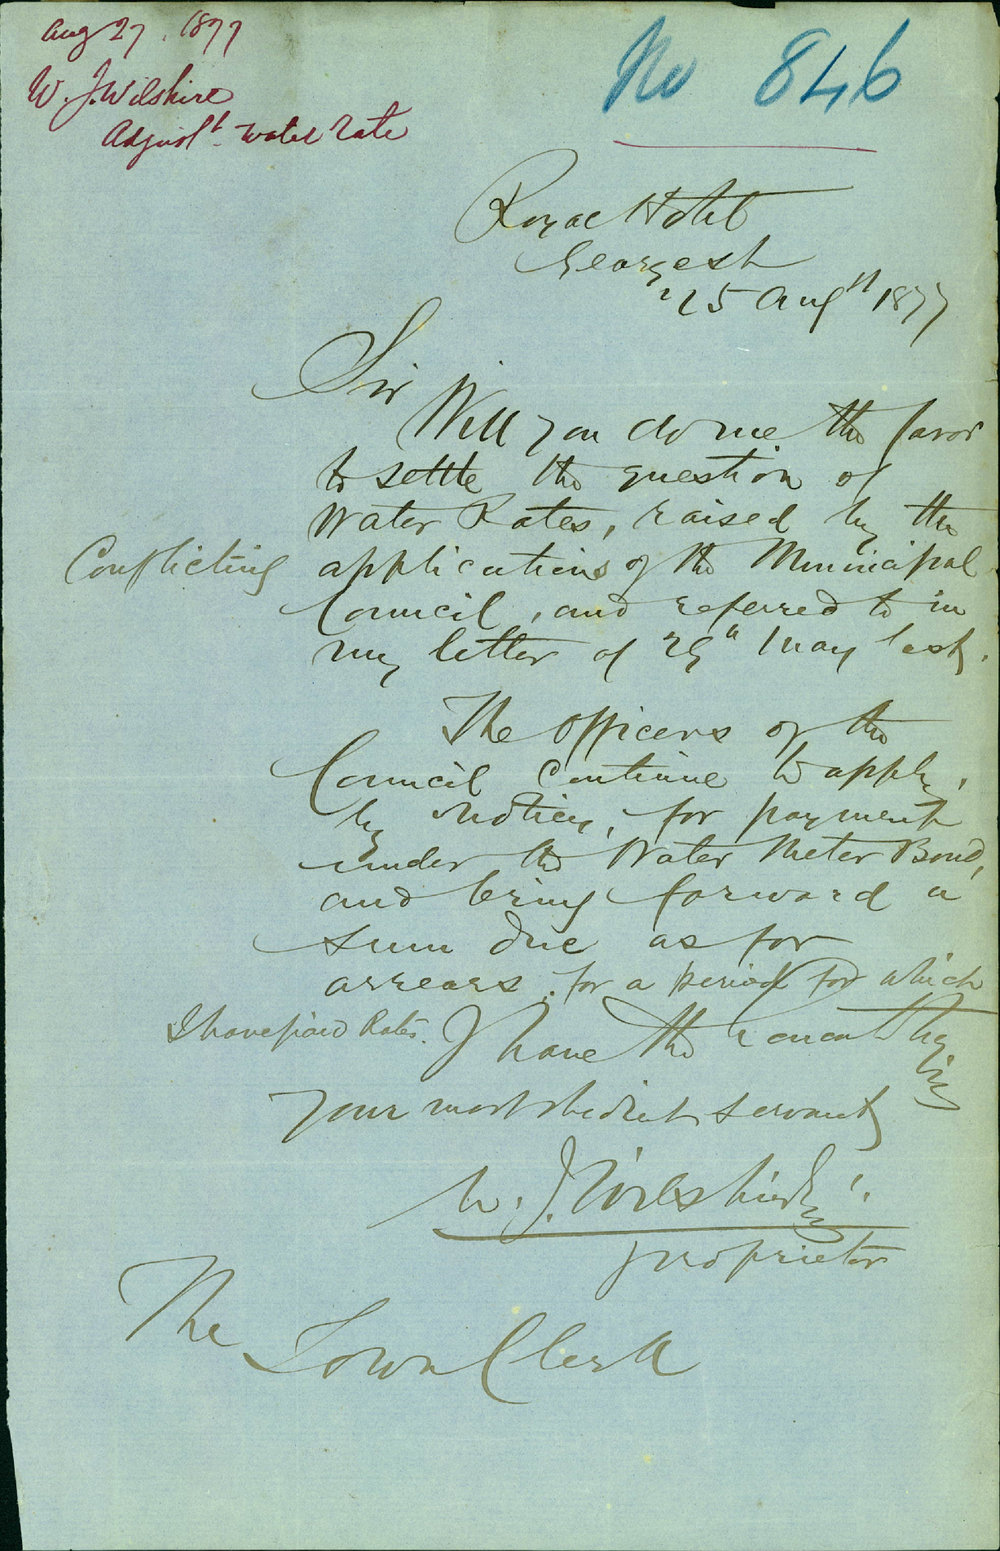 Aug 27. 1877
W. J. Wilshire
Adjust.t water rate
No 846
Royal Hotel
George St
25 Augst 1877
Sir
Will you do me the favor
to settle the question of
Water Rates, raised by the
Conflicting applications of the Municipal
Council, and referred to in
my letter of 29th May last.
The Officers of the
Council continue to apply,
by notice, for payment
under the Water Meter Bond,
and bring forward a
sum due as for
arrears. for a period for which
I have paid Rates. I have the honor to be
Sir
Your most obedient servant
W. J. Wilshire
proprietor
The
Town Clerk